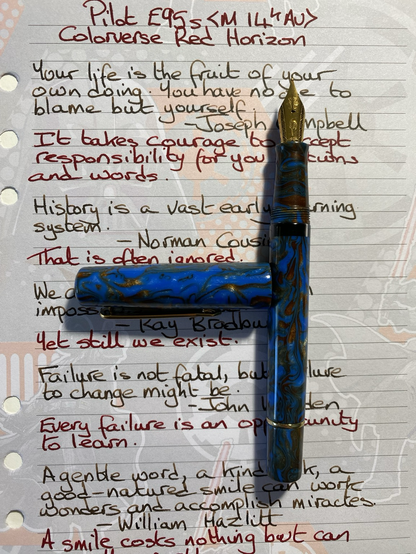 Pilot E95s <M 14k AU>
Colorverse Red Horizon
Your life is the fruit of your
own doing. You have no to
blame but yourself.
- Joseph mpbell
It takes courage to ccept
responsibility for you
and words.
History is a vast early rning
system.
- Norman Cousi
That is often ignored.
We a
imposs
- Ray Bradbu
Yet still we exist.
Failure is not fatal, but lure
to change might be.
- John den
Every failure is an opp unity
to learn.
A gentle word, a kind k, a
good-natured smile can work
wonders and accomplish miracles.
- William Hazlitt
A smile costs nothing but can